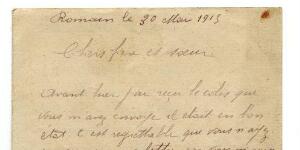 Romain le 30 Mai 1915
Chers frere et sœur
Avant hier j'ai recu le colis que
vous m'avez envoye il etait en bon
etat c'est regrettable que vous n'ayez